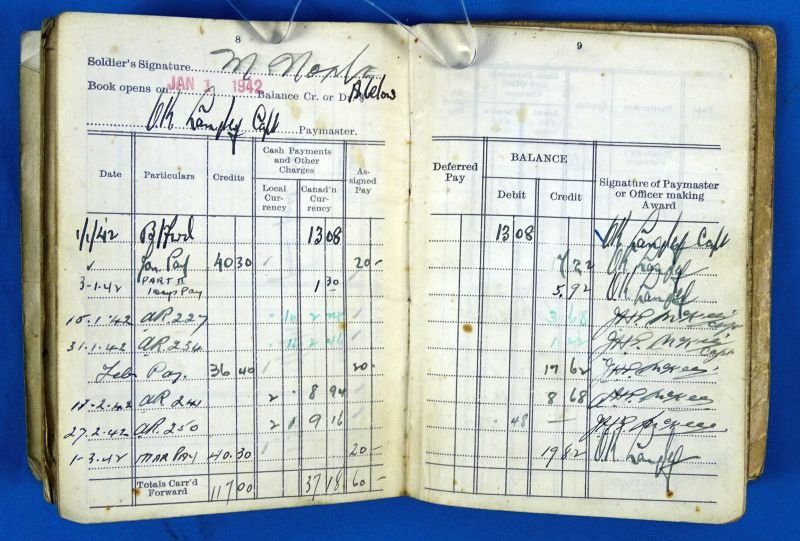 8
Soldier's Signature
Book opens on JAN 1 1942 Balance Cr. or Dr. Below
Capt Paymaster.
Date Particulars Credits Cash Payments and Other Charges Local Currency Canad'n Currency Assigned Pay
1/1/42 B/Fwd 13 08
Jan Pay 40 30 20 -
3-1-42 PART II 1 Days Pay 1 30
15.1.42 AR.227 10 2
31.1.42 AR.234 11 2 46
Feb Pay. 36 40 20 -
AR 241 2 8 94
27.2.42 AR.250 2 1 9 16
1-3.42 MAR PAY 40.30 20 -
Totals Carr'd Forward 117 00 37 18 60 -
9
Deferred Pay BALANCE Debit Credit Signature of Paymaster or Officer making Award
13 08 Capt
7 22
5.92
3 68 Capt
1 22 Capt
17 62
8 68
48 —
19 82